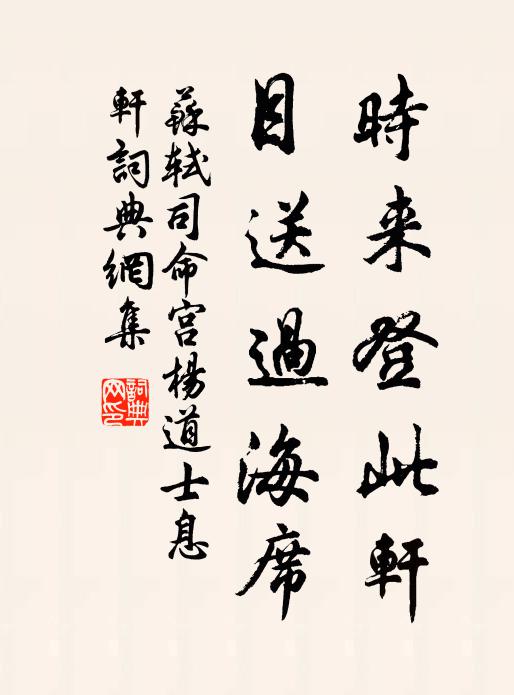 時来登此軒
目送過海席
蘇軾司命宫楊道士息
軒詞典網集
詞典
网印